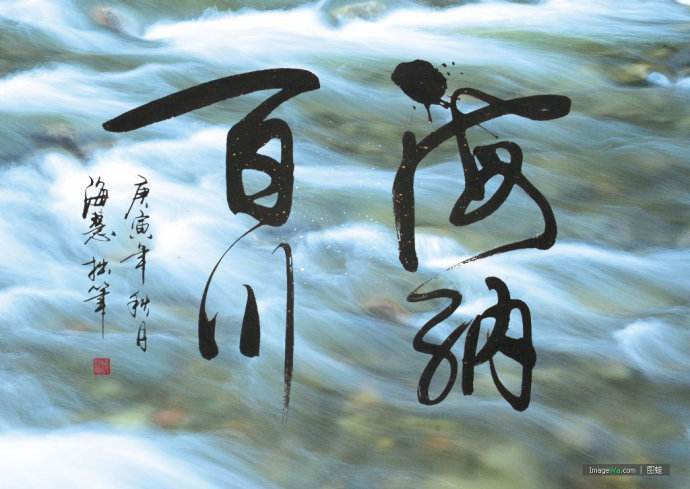 海纳
百川
庚寅年秋月
海慧拙笔
ImageWa.com | 图蛙